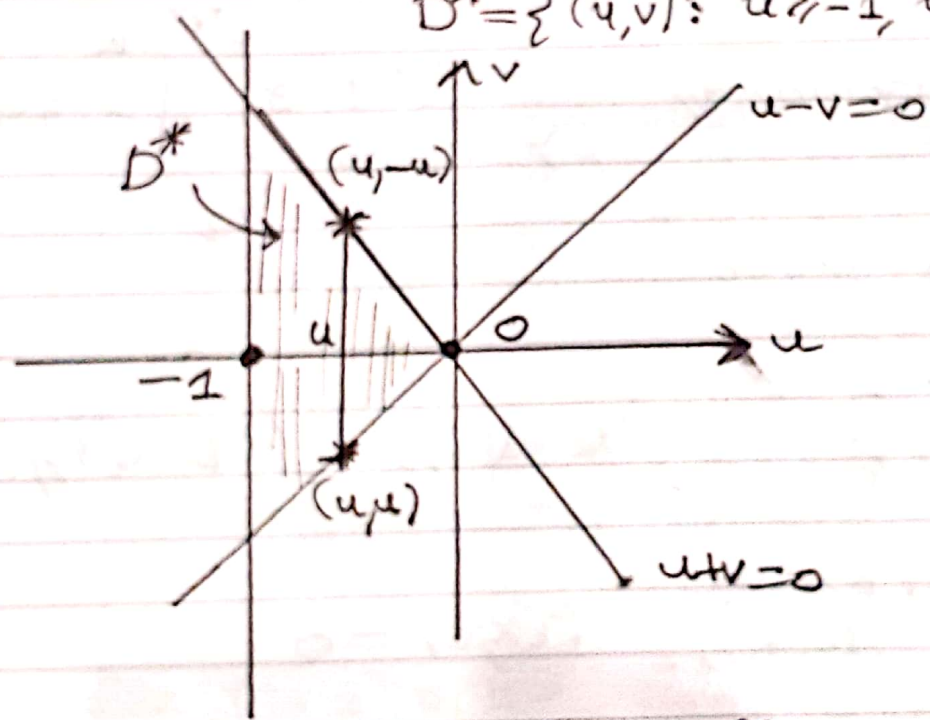 D* = { (u,v) : u ≥ -1,
v
u-v=0
D*
(u,-u)
u
0
u
-1
(u,u)
u+v=0